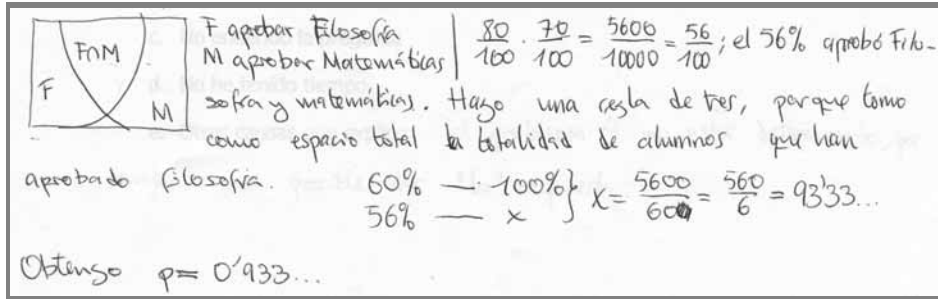 F∩M
F
M
F aprobar Filosofía
M aprobar Matemáticas
80/100 · 70/100 = 5600/10000 = 56/100; el 56% aprobó Filo-
sofía y matemáticas. Hago una regla de tres, porque tomo
como espacio total la totalidad de alumnos que han
aprobado filosofía.
60% — 100%
56% — x } x = 5600/600 = 560/6 = 93'33...
Obtengo p = 0'933...